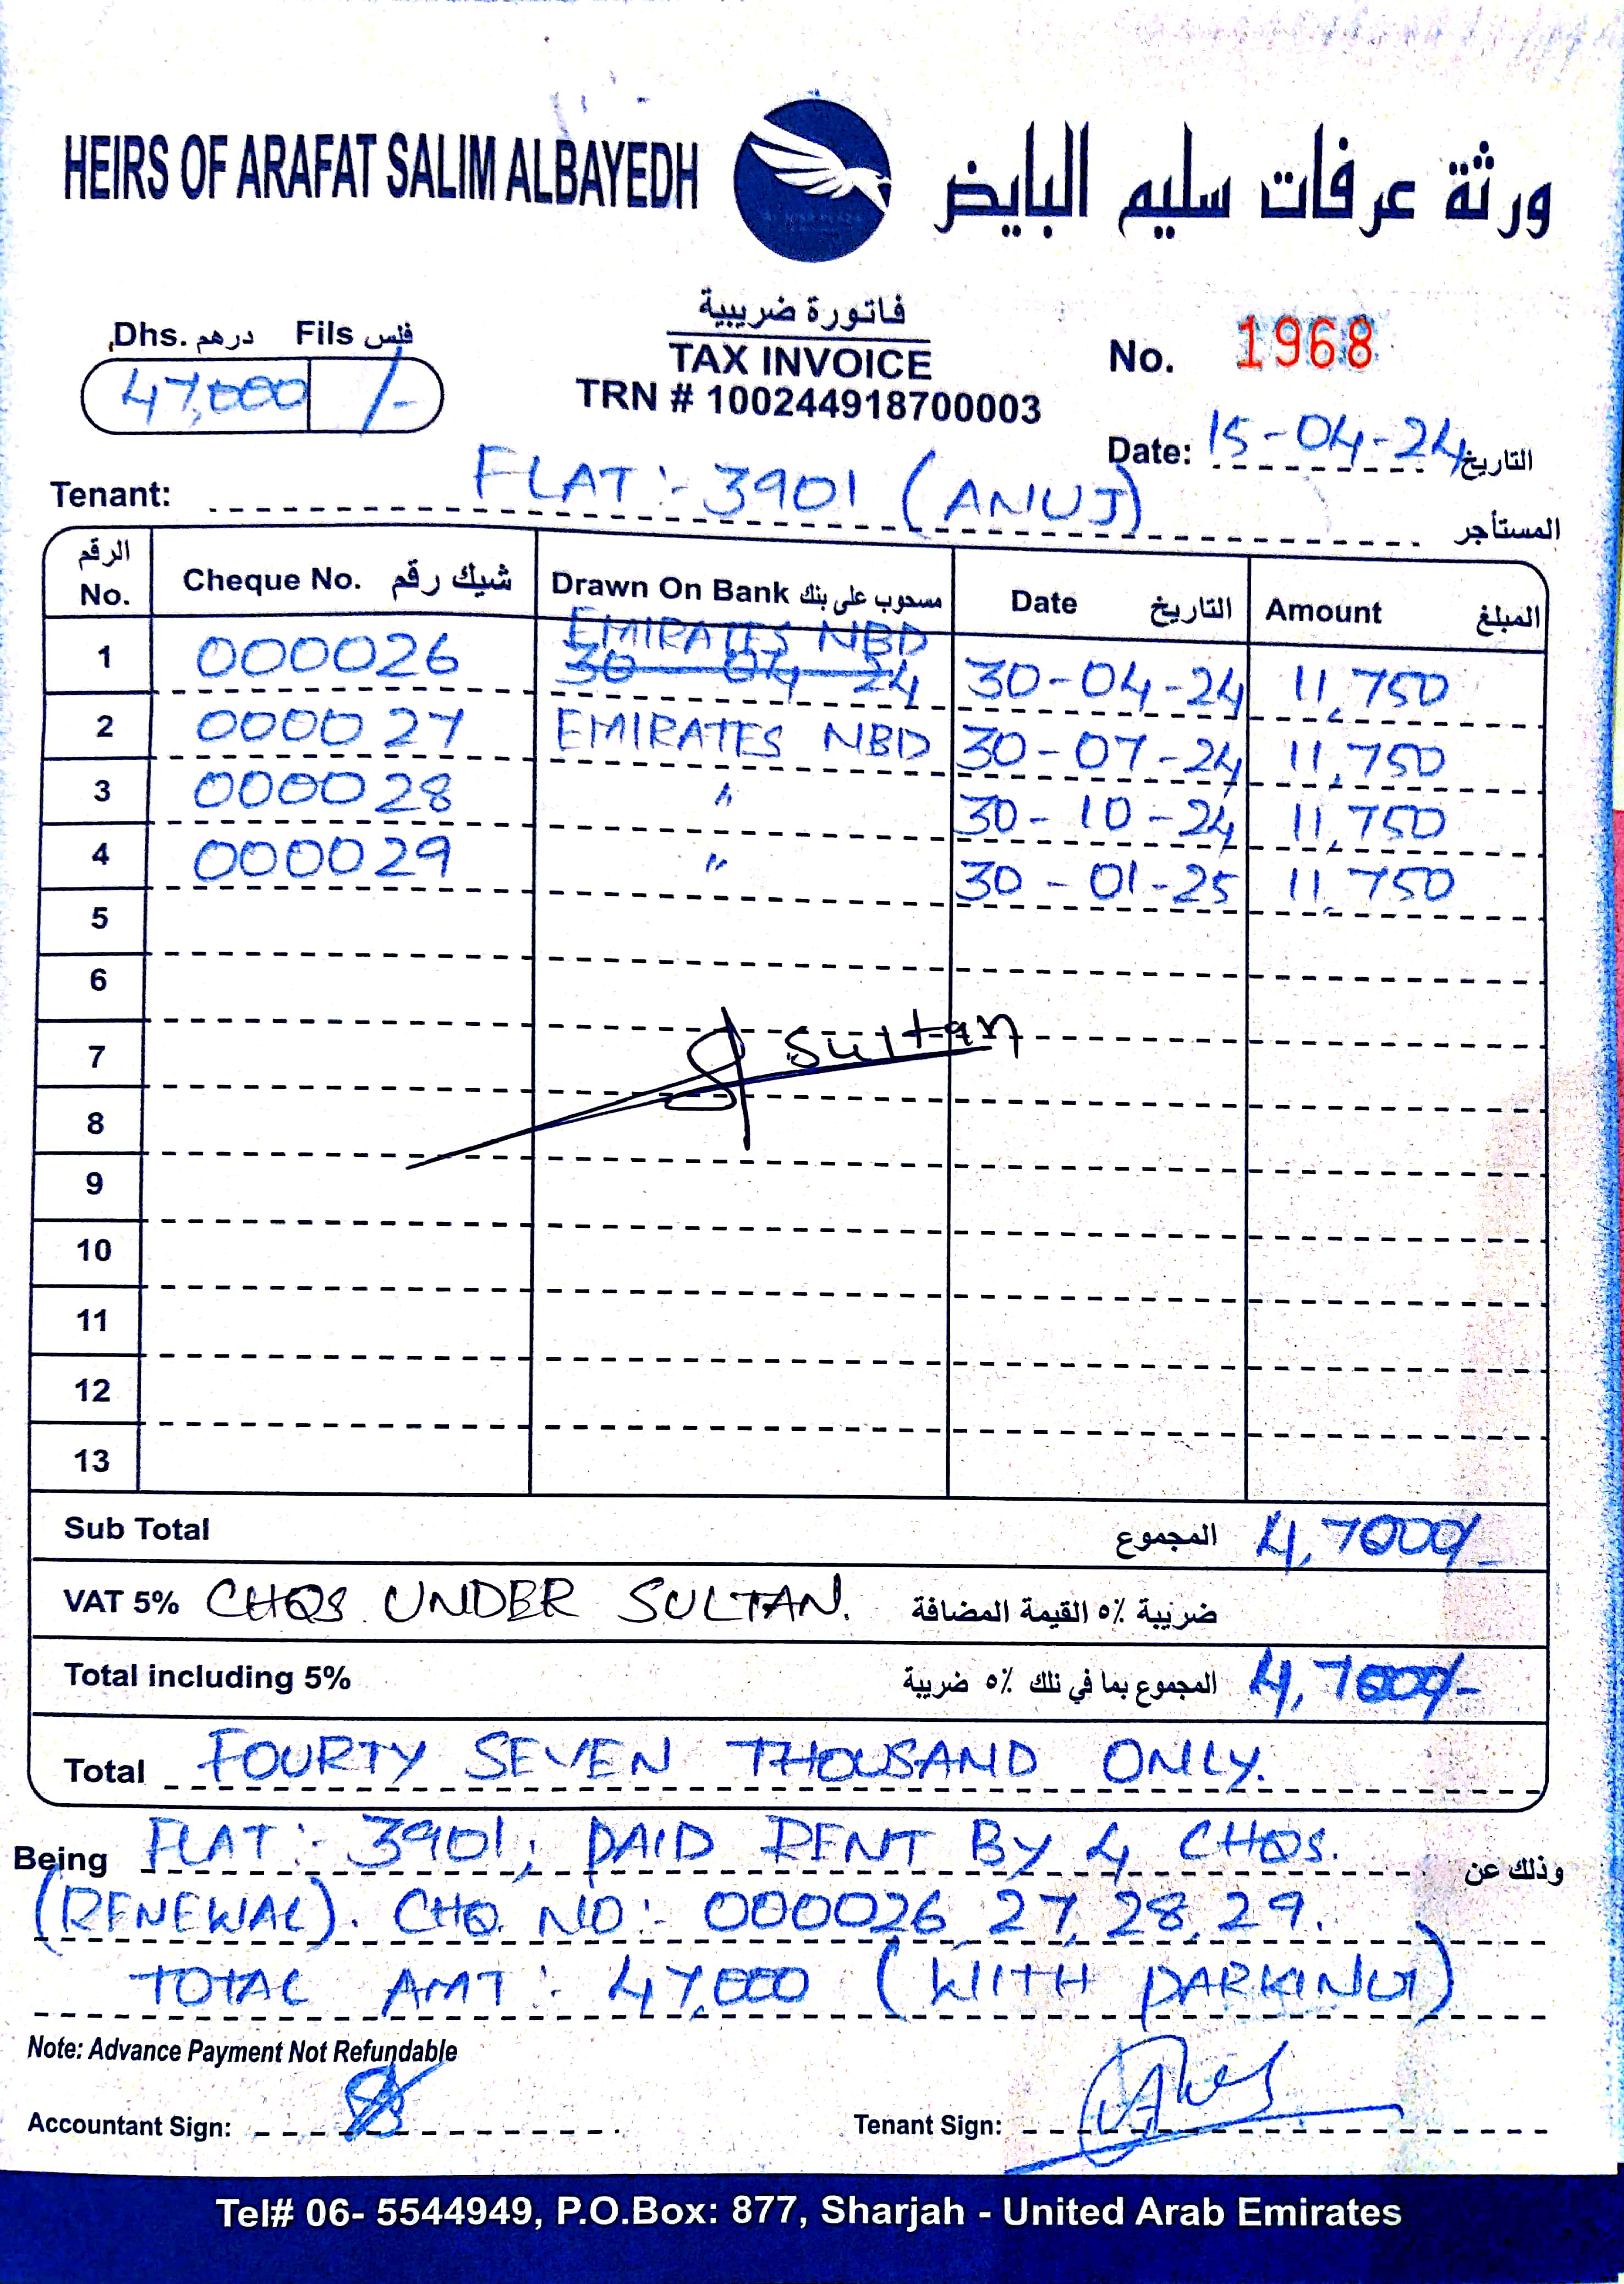 HEIRS OF ARAFAT SALIM ALBAYEDH
ورثة عرفات سليم البايض
Dhs. درهم Fils فلس
47,000 /-
فاتورة ضريبية
TAX INVOICE
TRN # 100244918700003
No. 1968
Date: 15-04-24 التاريخ
Tenant: FLAT:- 3901 (ANUJ) المستأجر
الرقم No. Cheque No. شيك رقم Drawn On Bank مسحوب على بنك Date التاريخ Amount المبلغ
1 000026 EMIRATES NBD 30-04-24 11,750
30 04 24
2 000027 EMIRATES NBD 30-07-24 11,750
3 000028 " 30-10-24 11,750
4 000029 " 30-01-25 11,750
5
6
7 Sultan
8
9
10
11
12
13
Sub Total المجموع 4,7000/-
VAT 5% CHQS UNDER SULTAN. ضريبة ٥% القيمة المضافة
Total including 5% المجموع بما في نلك ٥% ضريبة 4,7000/-
Total FOURTY SEVEN THOUSAND ONLY.
Being FLAT:- 3901; PAID RENT BY 4 CHQS. وذلك عن
(RENEWAL). CHQ. NO:- 000026, 27, 28, 29.
TOTAL AMT:- 47,000 (WITH PARKING)
Note: Advance Payment Not Refundable
Accountant Sign:
Tenant Sign:
Tel# 06- 5544949, P.O.Box: 877, Sharjah - United Arab Emirates